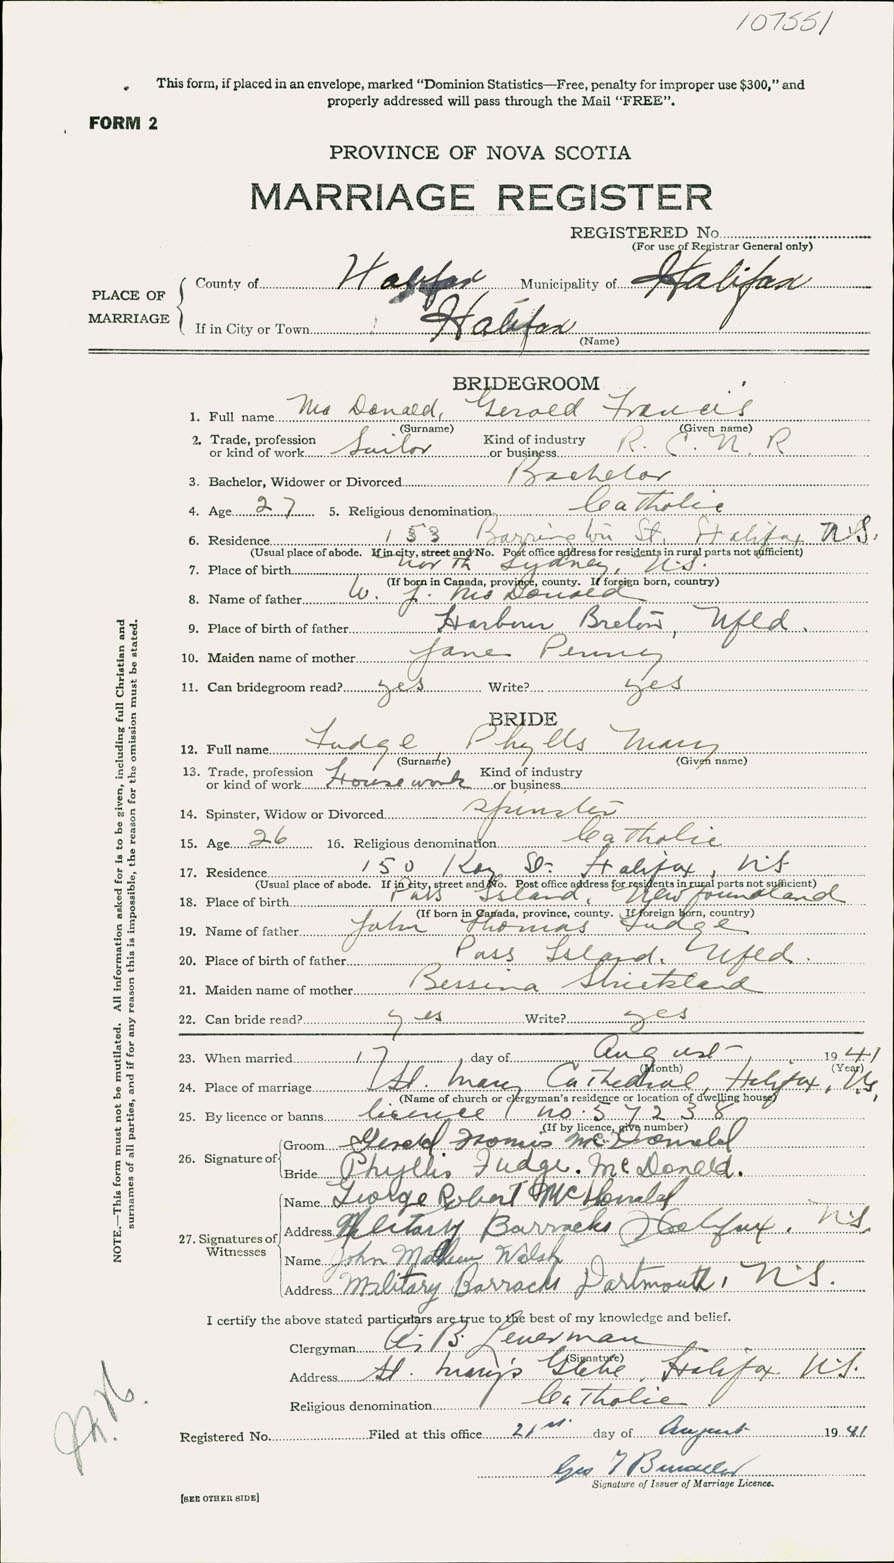 107551
This form, if placed in an envelope, marked “Dominion Statistics—Free, penalty for improper use $300,” and
properly addressed will pass through the Mail “FREE”.
FORM 2
PROVINCE OF NOVA SCOTIA
MARRIAGE REGISTER
REGISTERED No.
(For use of Registrar General only)
PLACE OF MARRIAGE
County of Halifax Municipality of Halifax
If in City or Town Halifax
(Name)
BRIDEGROOM
1. Full name McDonald, Gerald Francis
(Surname) (Given name)
2. Trade, profession or kind of work Sailor Kind of industry or business R. C. N. R
3. Bachelor, Widower or Divorced Bachelor
4. Age 27 5. Religious denomination Catholic
6. Residence 153 Barrington St. Halifax N.S.
(Usual place of abode. If in city, street and No. Post office address for residents in rural parts not sufficient)
7. Place of birth North Sydney, N.S.
(If born in Canada, province, county. If foreign born, country)
8. Name of father W. J. McDonald
9. Place of birth of father Harbour Breton, Nfld.
10. Maiden name of mother Jane Penney
11. Can bridegroom read? yes Write? yes
BRIDE
12. Full name Fudge, Phylls Mary
(Surname) (Given name)
13. Trade, profession or kind of work Housework Kind of industry or business
14. Spinster, Widow or Divorced Spinster
15. Age 26 16. Religious denomination Catholic
17. Residence 150 St. Halifax, N.S
(Usual place of abode. If in city, street and No. Post office address for residents in rural parts not sufficient)
18. Place of birth Pass Island, Newfoundland
(If born in Canada, province, county. If foreign born, country)
19. Name of father John Thomas Fudge
20. Place of birth of father Pass Island. Nfld.
21. Maiden name of mother Bessina Strickland
22. Can bride read? yes Write? yes
23. When married 17 day of August 1941
(Month) (Year)
24. Place of marriage St. Mary Cathedral, Halifax, N.S.
(Name of church or clergyman's residence or location of dwelling house)
25. By licence or banns licence no. 57238
(If by licence, give number)
26. Signature of
Groom Gerald Francis McDonald
Bride Phyllis Fudge. McDonald.
27. Signatures of Witnesses
Name George Robert McDonald
Address Military Barracks Halifax. N.S.
Name John Mathew Walsh
Address Military Barracks Dartmouth, N.S.
I certify the above stated particulars are true to the best of my knowledge and belief.
Clergyman B.
(Signature)
Address St. Mary's Glebe, Halifax N.S.
Religious denomination Catholic
Registered No. Filed at this office 21st day of August 1941
Geo
Signature of Issuer of Marriage Licence.
[SEE OTHER SIDE]
NOTE.—This form must not be mutilated. All information asked for is to be given, including full Christian and
surnames of all parties, and if for any reason this is impossible, the reason for the omission must be stated.